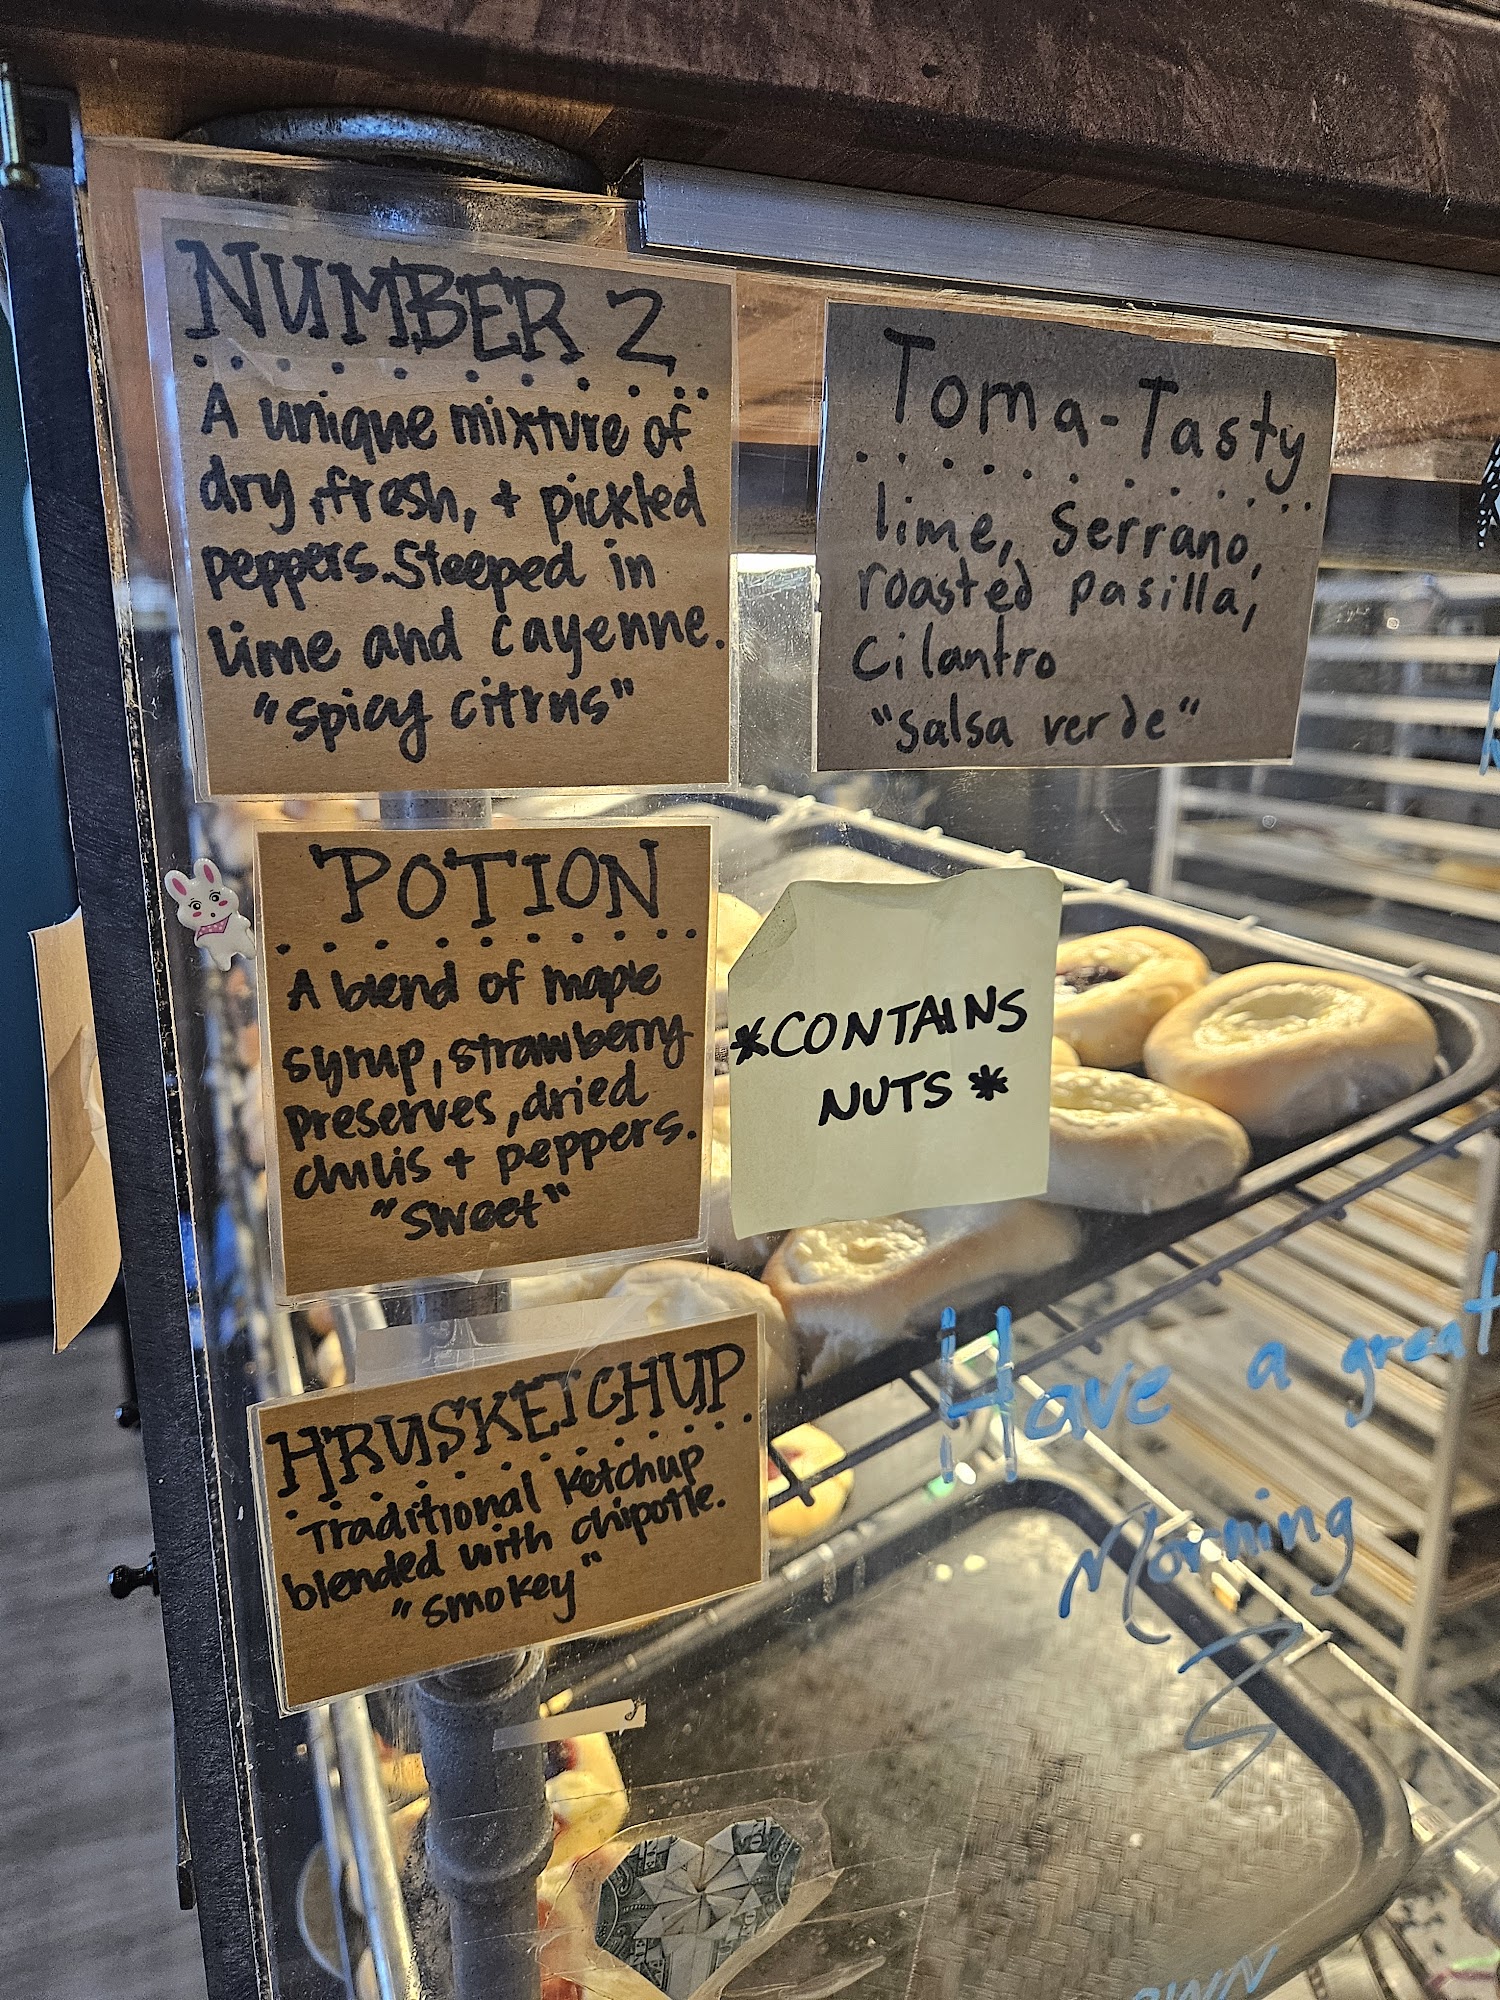 NUMBER 2
A unique mixture of
dry, fresh, + pickled
peppers. Steeped in
lime and cayenne.
"spicy citrus"
Toma-Tasty
lime, Serrano,
roasted pasilla,
cilantro
"salsa verde"
POTION
A blend of maple
syrup, strawberry
preserves, dried
chilis + peppers.
"sweet"
*CONTAINS
NUTS*
HRUSKETCHUP
Traditional ketchup
blended with chipotle.
"smokey"
Have a great
Morning